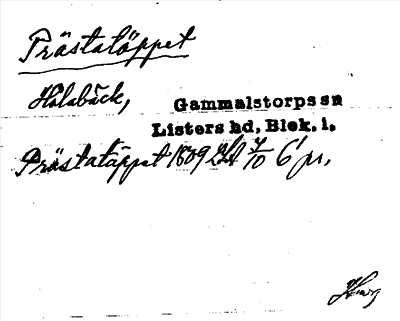 Prästatäppet
Hålabäck,
Gammalstorps sn
Listers hd, Blek. l.
Prästatäppet 1809 LSA 7/10 6' pr.